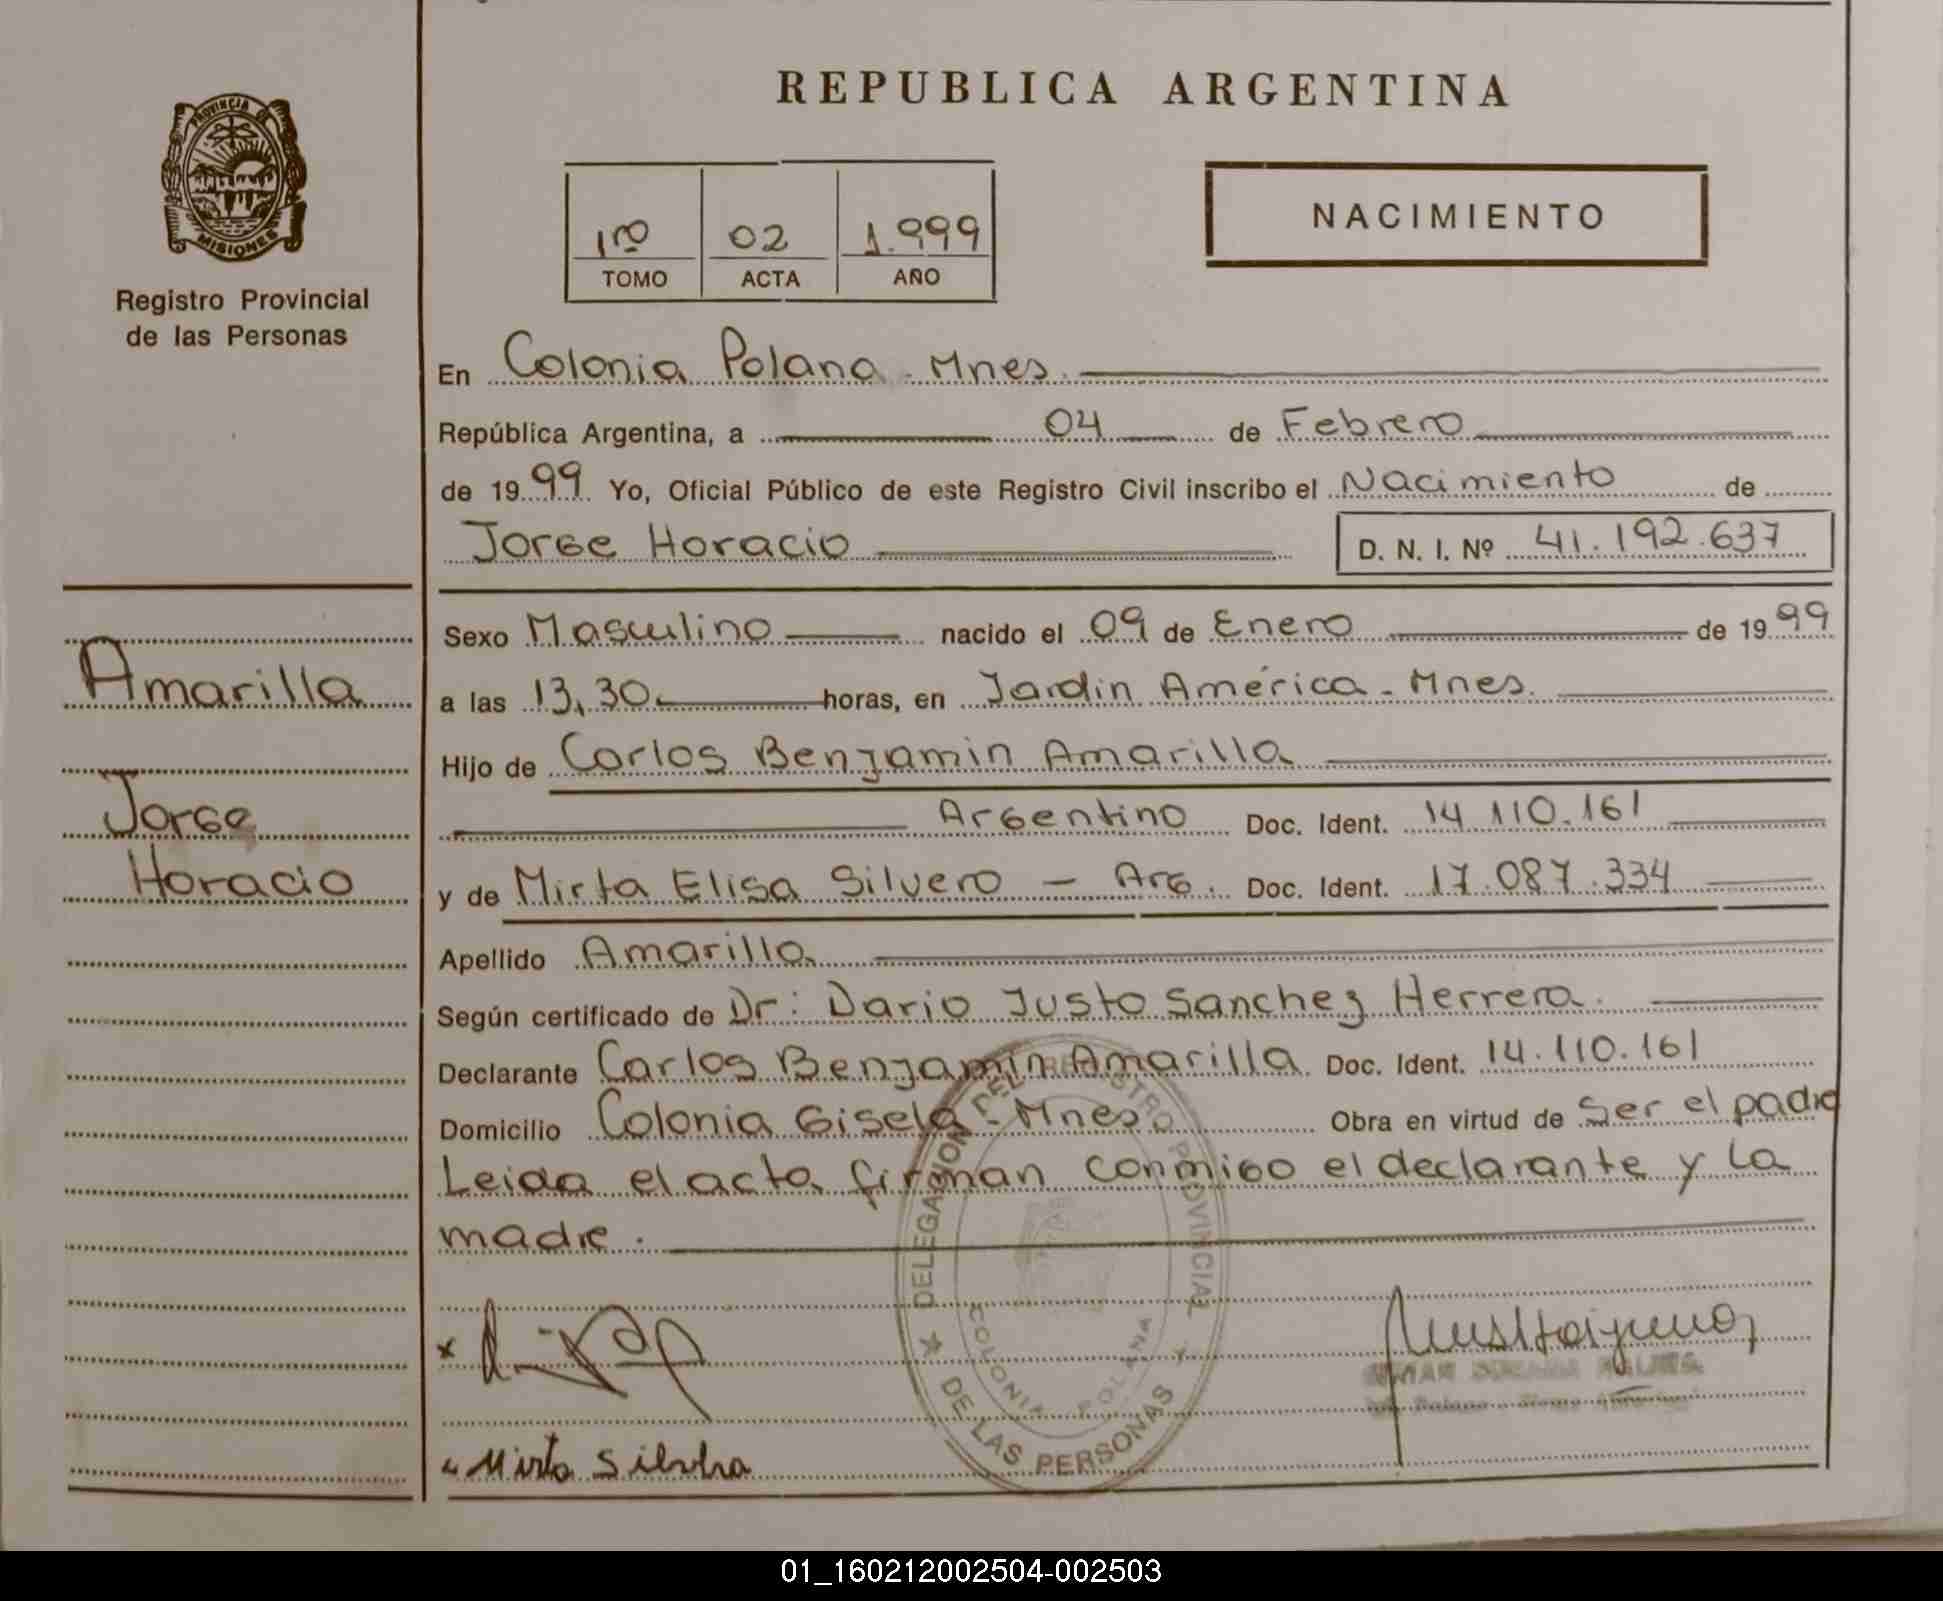 REPUBLICA ARGENTINA
PROVINCIA DE
MISIONES
Registro Provincial
de las Personas
1ro 02 1.999
TOMO ACTA AÑO
NACIMIENTO
En Colonia Polana - Mnes.
República Argentina, a 04 de Febrero
de 1999 Yo, Oficial Público de este Registro Civil inscribo el Nacimiento de
Jorge Horacio D. N. I. Nº 41.192.637
Sexo Masculino nacido el 09 de Enero de 1999
a las 13,30 horas, en Jardin América - Mnes.
Hijo de Carlos Benjamin Amarilla
Argentino Doc. Ident. 14.110.161
y de Mirta Elisa Silvero - Arg. Doc. Ident. 17.087.334
Apellido Amarilla
Según certificado de Dr: Dario Justo Sanchez Herrera.
Declarante Carlos Benjamin Amarilla Doc. Ident. 14.110.161
Domicilio Colonia Gisela - Mnes. Obra en virtud de Ser el padre
Leida el acta firman conmigo el declarante y La
madre.
Amarilla
Jorge
Horacio
DELEGACION DEL REGISTRO PROVINCIAL
DE LAS PERSONAS
COLONIA POLANA
Mirta
01_160212002504-002503